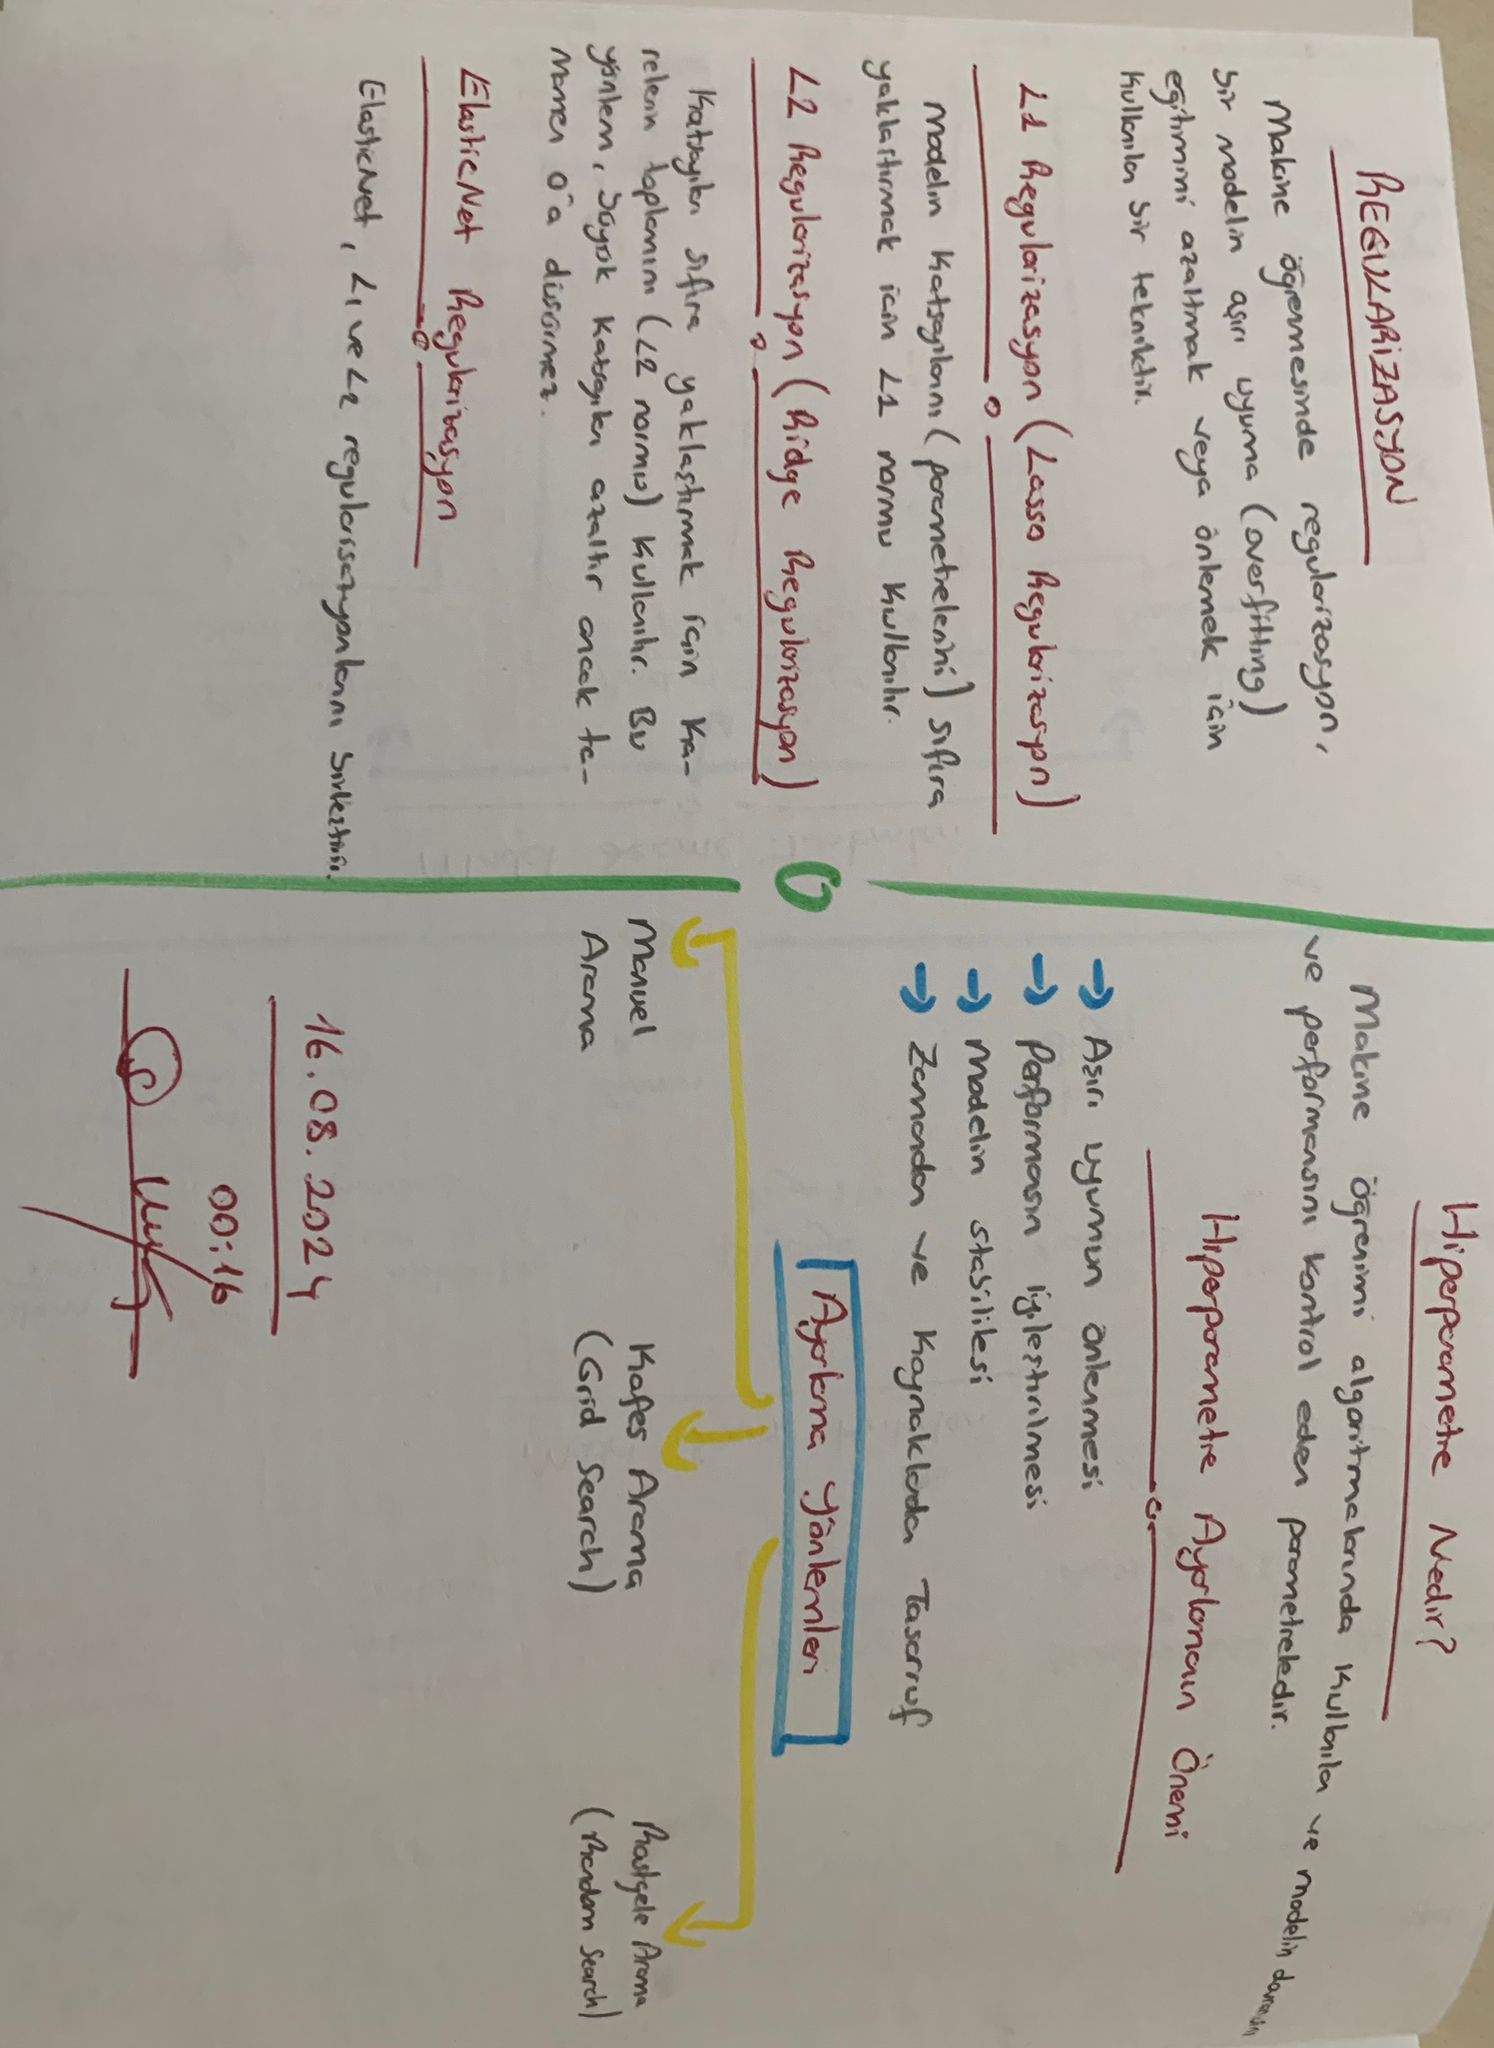 REGULARİZASYON
Makine öğrenmesinde regularizasyon,
bir modelin aşırı uyuma (overfitting)
eğitimini azaltmak veya önlemek için
kullanılan bir tekniktir.
L1 Regularizasyon (Lasso Regularizasyon)
Modelin katsayılarını (parametrelerini) sıfıra
yaklaştırmak için L1 normu kullanılır.
L2 Regularizasyon (Ridge Regularizasyon)
Katsayıları sıfıra yaklaştırmak için ka-
relerin toplamını (L2 normu) kullanılır. Bu
yöntem, büyük katsayıları azaltır ancak ta-
mamen 0'a düşürmez.
ElasticNet Regularizasyon
ElasticNet, L1 ve L2 regularisazyonlarını birleştirir.
Hiperparametre Nedir?
Makine öğrenimi algoritmalarında kullanılan ve modelin davranışını
ve performansını kontrol eden parametreledir.
Hiperparametre Ayarlamanın Önemi
→ Aşırı uyumun önlenmesi
→ Performansın iyileştirilmesi
→ Modelin stabilitesi
→ Zamandan ve Kaynakladan Tasarruf
Ayarlama Yöntemleri
Manuel
Arama
Kafes Arama
(Grid Search)
Rastgele Arama
(Random Search)
16.08.2024
00:16